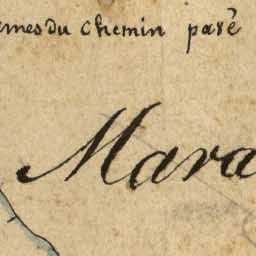 mes du chemin paré
Mara